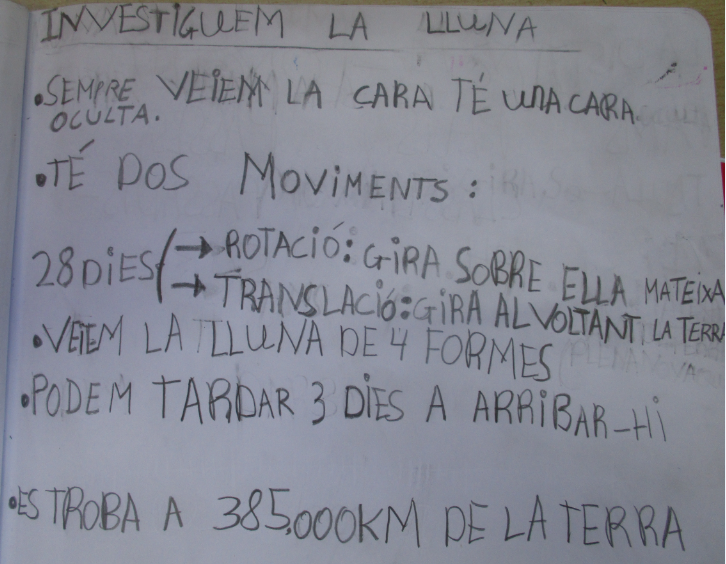 INVESTIGUEM LA LLUNA
•SEMPRE VEIEM LA CARA TÉ UNA CARA.
OCULTA.
•TÉ DOS MOVIMENTS:
28 DIES → ROTACIÓ: GIRA SOBRE ELLA MATEIXA
→ TRANSLACIÓ: GIRA AL VOLTANT LA TERRA
•VEIEM LA LLUNA DE 4 FORMES
•PODEM TARDAR 3 DIES A ARRIBAR-HI
•ES TROBA A 385.000KM DE LA TERRA